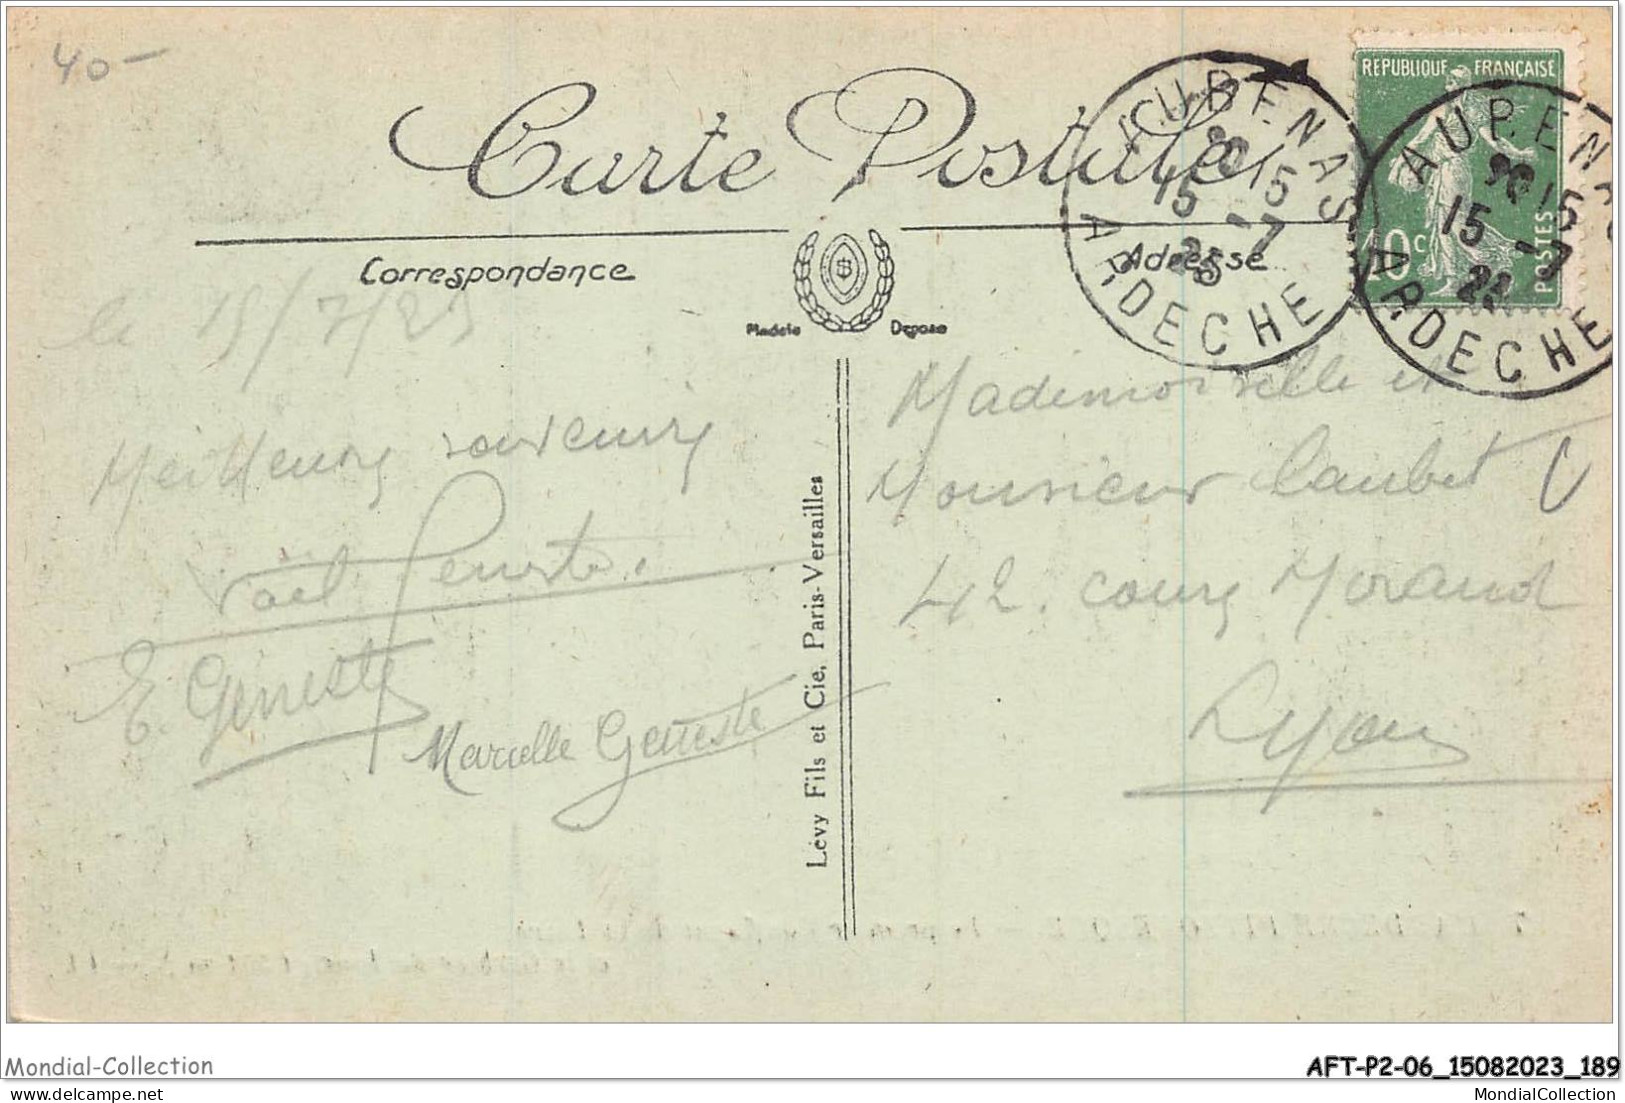 40-
Carte Postale
REPUBLIQUE FRANÇAISE
10c
POSTES
AUBENAS
20 15
15 -7
25
ARDECHE
AUBENAS
15
15 -7
ARDECHE
Correspondance
Adresse
Modèle Déposé
le 15/7/25
Meilleurs souvenirs
Geneste.
E. Geneste
Marcelle Geneste
Lévy Fils et Cie, Paris-Versailles
Mademoiselle et
Monsieur Caubet
42. cours Morand
Lyon
Mondial-Collection
AFT-P2-06_15082023_189
delcampe.net
MondialCollection